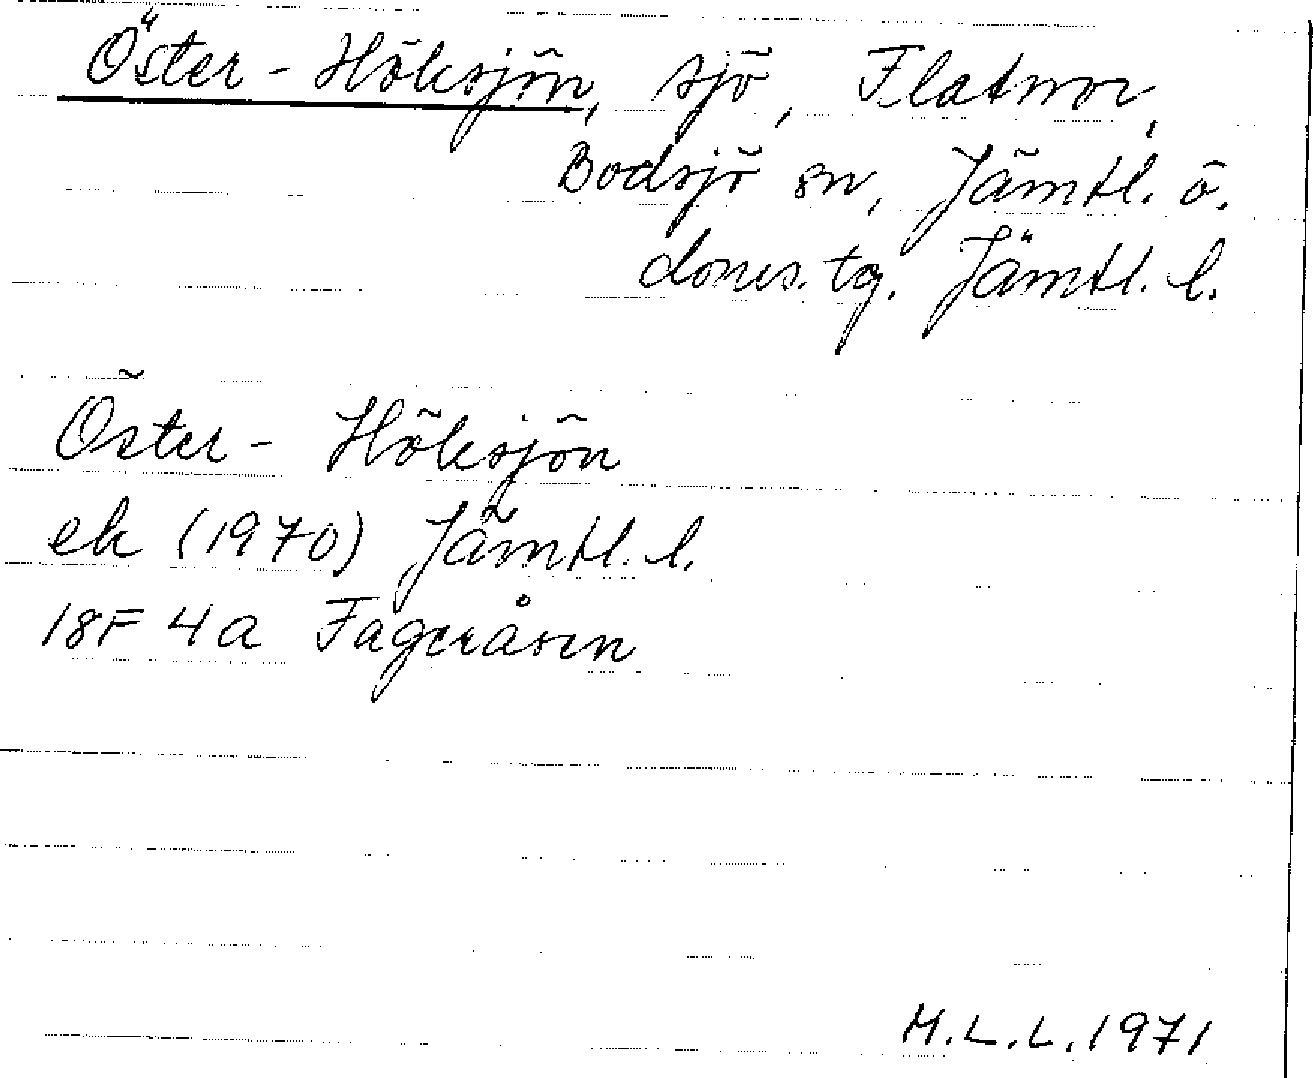 Öster-Höksjön, sjö, Flatnor,
Bodsjö sn, Jämtl. ö.
doms. tg. Jämtl. l.
Öster-Höksjön
ek (1970) Jämtl. l.
18F 4a Fageråsen
M.L.L. 1971